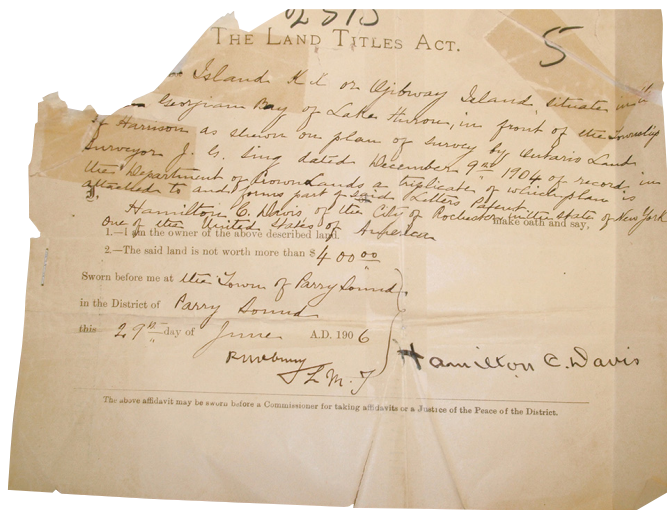 2515
THE LAND TITLES ACT.
5
Island K.K or Ojibway Island, situate in
Georgian Bay of Lake Huron, in front of the Township
of Harrison as shewn on plan of survey by Ontario Land
Surveyor J. G. Sing dated December 9th 1904 of record in
the Department of Crown Lands a triplicate of which plan is
attached to and forms part of said Letters Patent.
I, Hamilton C. Davis of the City of Rochester in the state of New York
one of the United States of America make oath and say,
1.—I am the owner of the above described land.
2.—The said land is not worth more than $400 00
Sworn before me at the Town of Parry Sound
in the District of Parry Sound
this 29th day of June A.D. 1906
Hamilton C. Davis
L. M. T
The above affidavit may be sworn before a Commissioner for taking affidavits or a Justice of the Peace of the District.